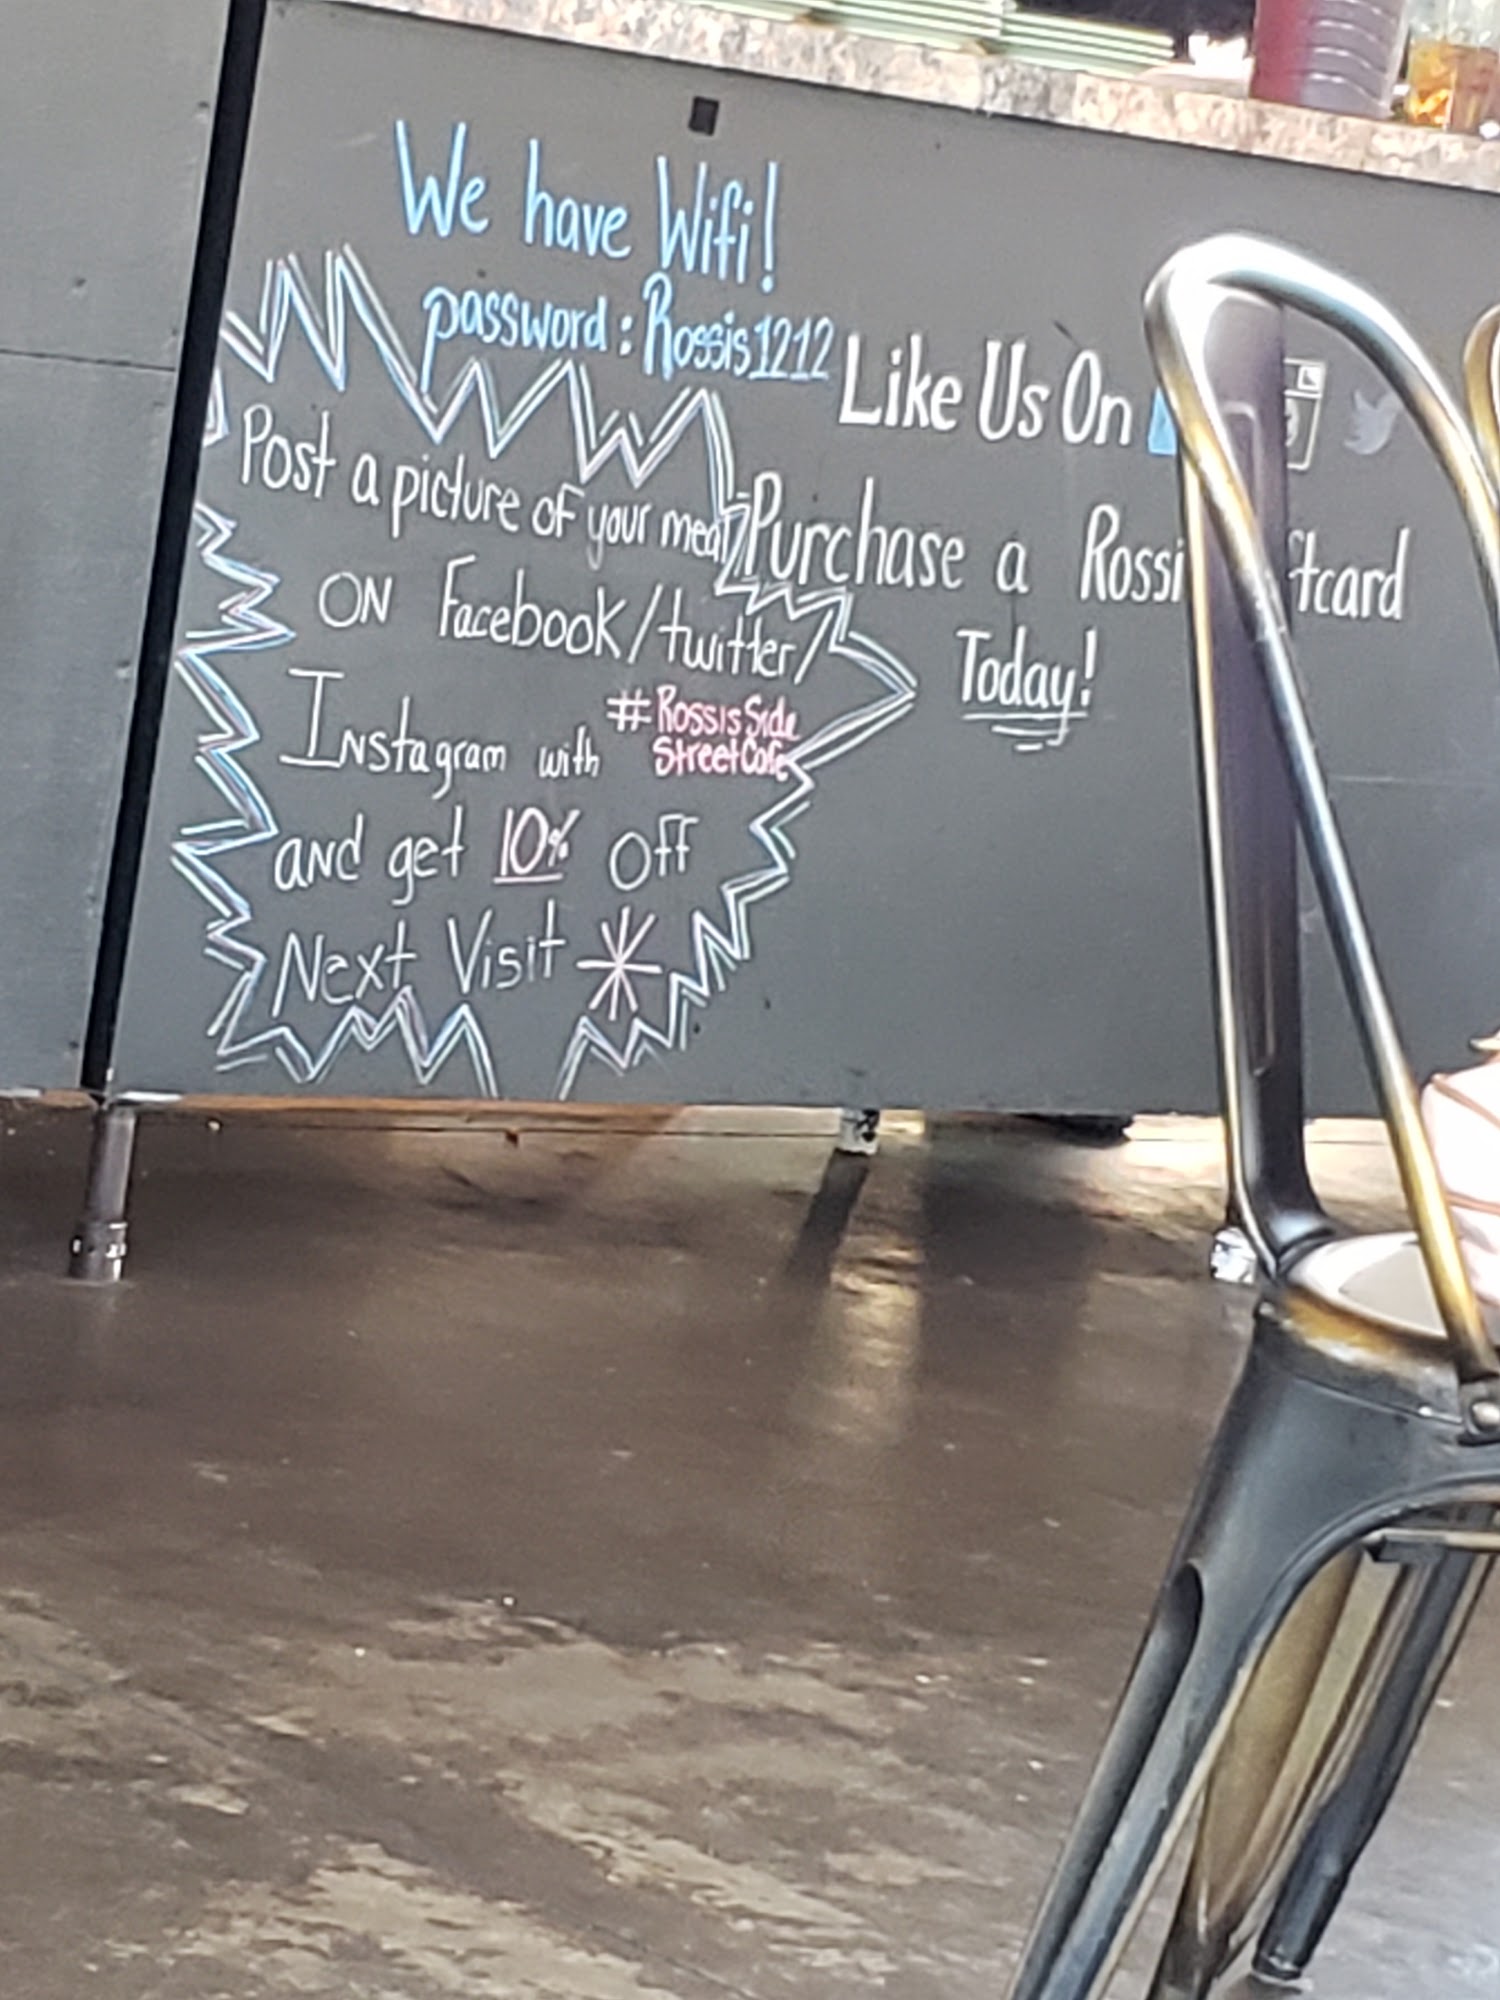 We have Wifi!
password: Rossis1212
Like Us On
Post a picture of your meal
ON Facebook/twitter/
Instagram with #RossisSide
StreetCafe
and get 10% off
Next Visit
Purchase a Rossi tcard
Today!